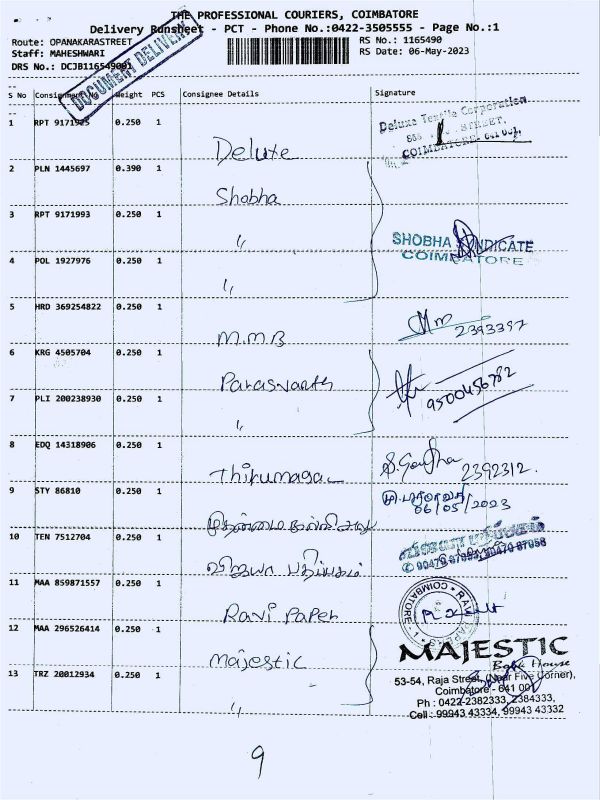 THE PROFESSIONAL COURIERS, COIMBATORE
Delivery Runsheet - PCT - Phone No.:0422-3505555 - Page No.:1
Route: OPANAKARASTREET
RS No.: 1165490
Staff: MAHESHWARI
RS Date: 06-May-2023
DRS No.: DCJB116549001
DOCUMENT DELIVERY
S No Consignment No Weight PCS Consignee Details Signature
1 RPT 9171925 0.250 1 Delute
Deluxe Textile Corporation
STREET,
COIMBATORE
2 PLN 1445697 0.390 1 Shobha
3 RPT 9171993 0.250 1 "
SHOBHA SYNDICATE
COIMBATORE
4 POL 1927976 0.250 1 "
5 HRD 369254822 0.250 1 M.M.B 2393397
6 KRG 4505704 0.250 1 Parasvanth
9500456782
7 PLI 200238930 0.250 1 "
8 EDQ 14318906 0.250 1 Thirumagal 2392312.
9 STY 86810 0.250 1
06/05/2023
10 TEN 7512704 0.250 1 விஜயா பதிப்பகம்
11 MAA 859871557 0.250 1 Ravi Paper
COIMBATORE - 1
12 MAA 296526414 0.250 1 Majestic
MAJESTIC
Book House
13 TRZ 20012934 0.250 1 "
53-54, Raja Street, (Near Five Corner),
Coimbatore - 641 001
Ph : 0422-2382333, 2384333,
Cell : 99943 43334, 99943 43332
9